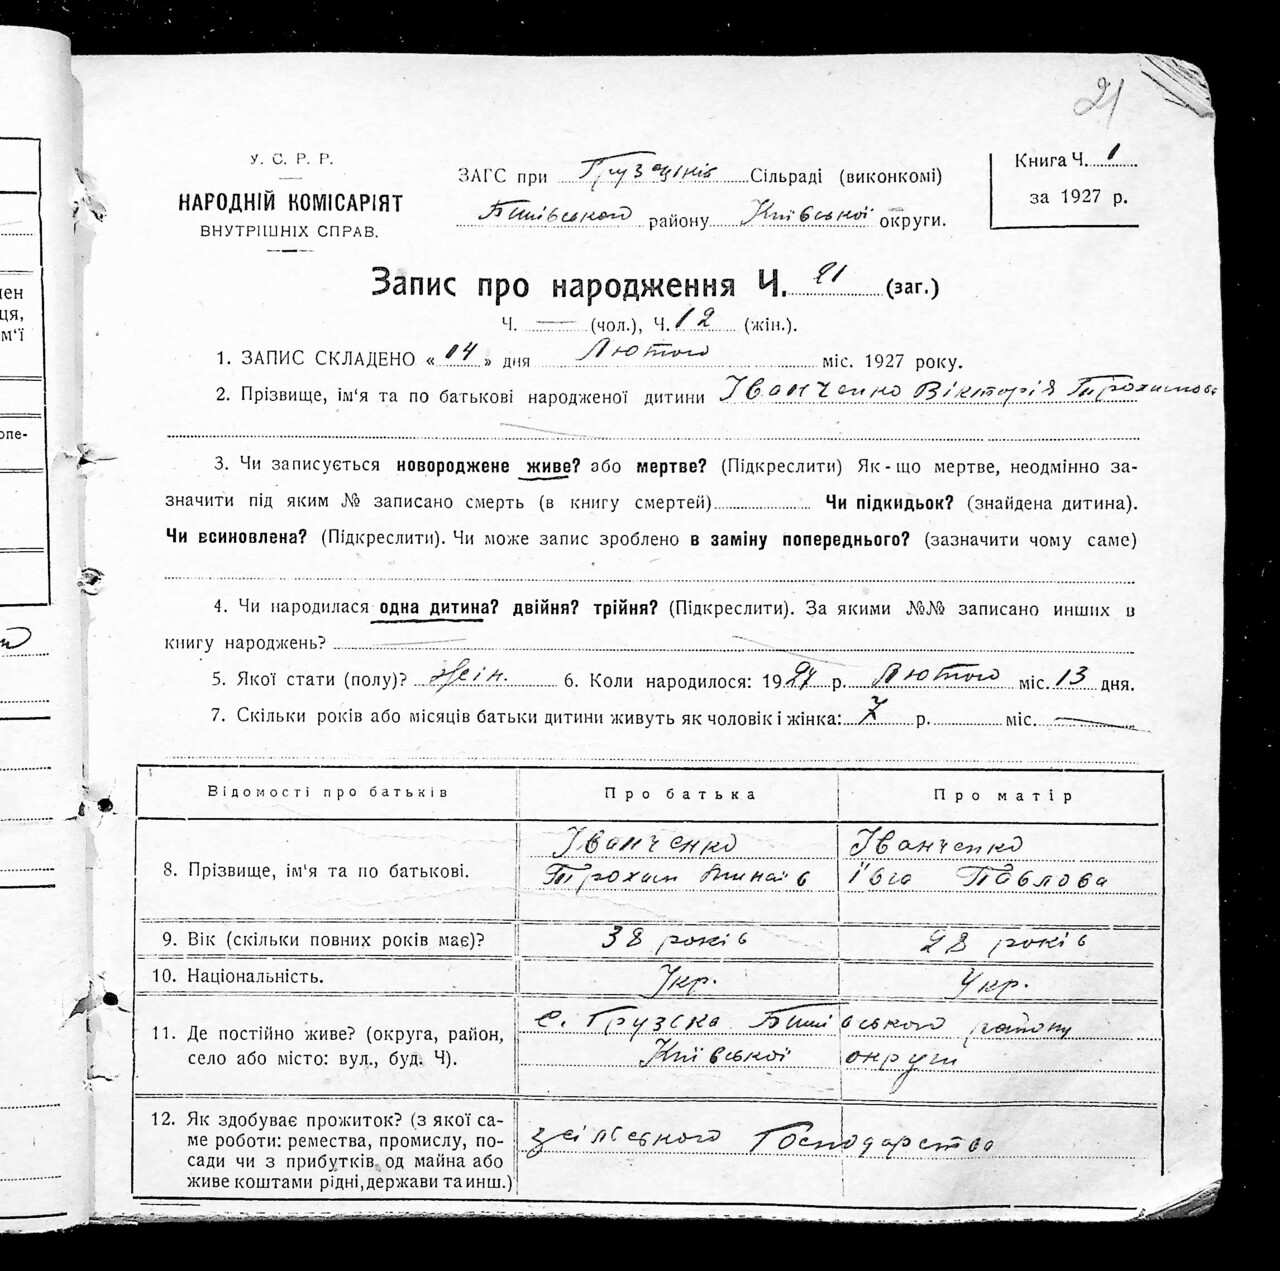 21
У. С. Р. Р.
НАРОДНІЙ КОМІСАРІЯТ
ВНУТРІШНІХ СПРАВ.
ЗАГС при Грузчанській Сільраді (виконкомі)
Бишівського району Київської округи.
Книга Ч. 1
за 1927 р.
Запис про народження Ч. 21 (заг.)
Ч. — (чол.), Ч. 12 (жін.).
1. ЗАПИС СКЛАДЕНО « 14 » дня Лютого міс. 1927 року.
2. Прізвище, ім'я та по батькові народженої дитини Іванченко Вікторія Трохимова
3. Чи записується новороджене живе? або мертве? (Підкреслити) Як-що мертве, неодмінно за-
значити під яким № записано смерть (в книгу смертей) Чи підкидьок? (знайдена дитина).
Чи всиновлена? (Підкреслити). Чи може запис зроблено в заміну попереднього? (зазначити чому саме)
4. Чи народилася одна дитина? двійня? трійня? (Підкреслити). За якими №№ записано инших в
книгу народжень?
5. Якої стати (полу)? жін. 6. Коли народилося: 1927 р. Лютого міс. 13 дня.
7. Скільки років або місяців батьки дитини живуть як чоловік і жінка: 7 р. міс. —
Відомості про батьків
Про батька
Про матір
8. Прізвище, ім'я та по батькові.
Іванченко
Трохим
Іванченко
Івга Павлова
9. Вік (скільки повних років має)?
38 років
28 років
10. Національність.
Укр.
Укр.
11. Де постійно живе? (округа, район,
село або місто: вул., буд. Ч).
с. Грузска Бишівського району
Київської округи
12. Як здобуває прожиток? (з якої са-
ме роботи: ремества, промислу, по-
сади чи з прибутків од майна або
живе коштами рідні, держави та инш.)
зсільського Господарства
ен
ця,
м'ї
опе-